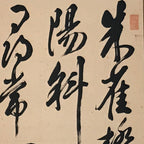 朱雀橋
陽斜
尋常